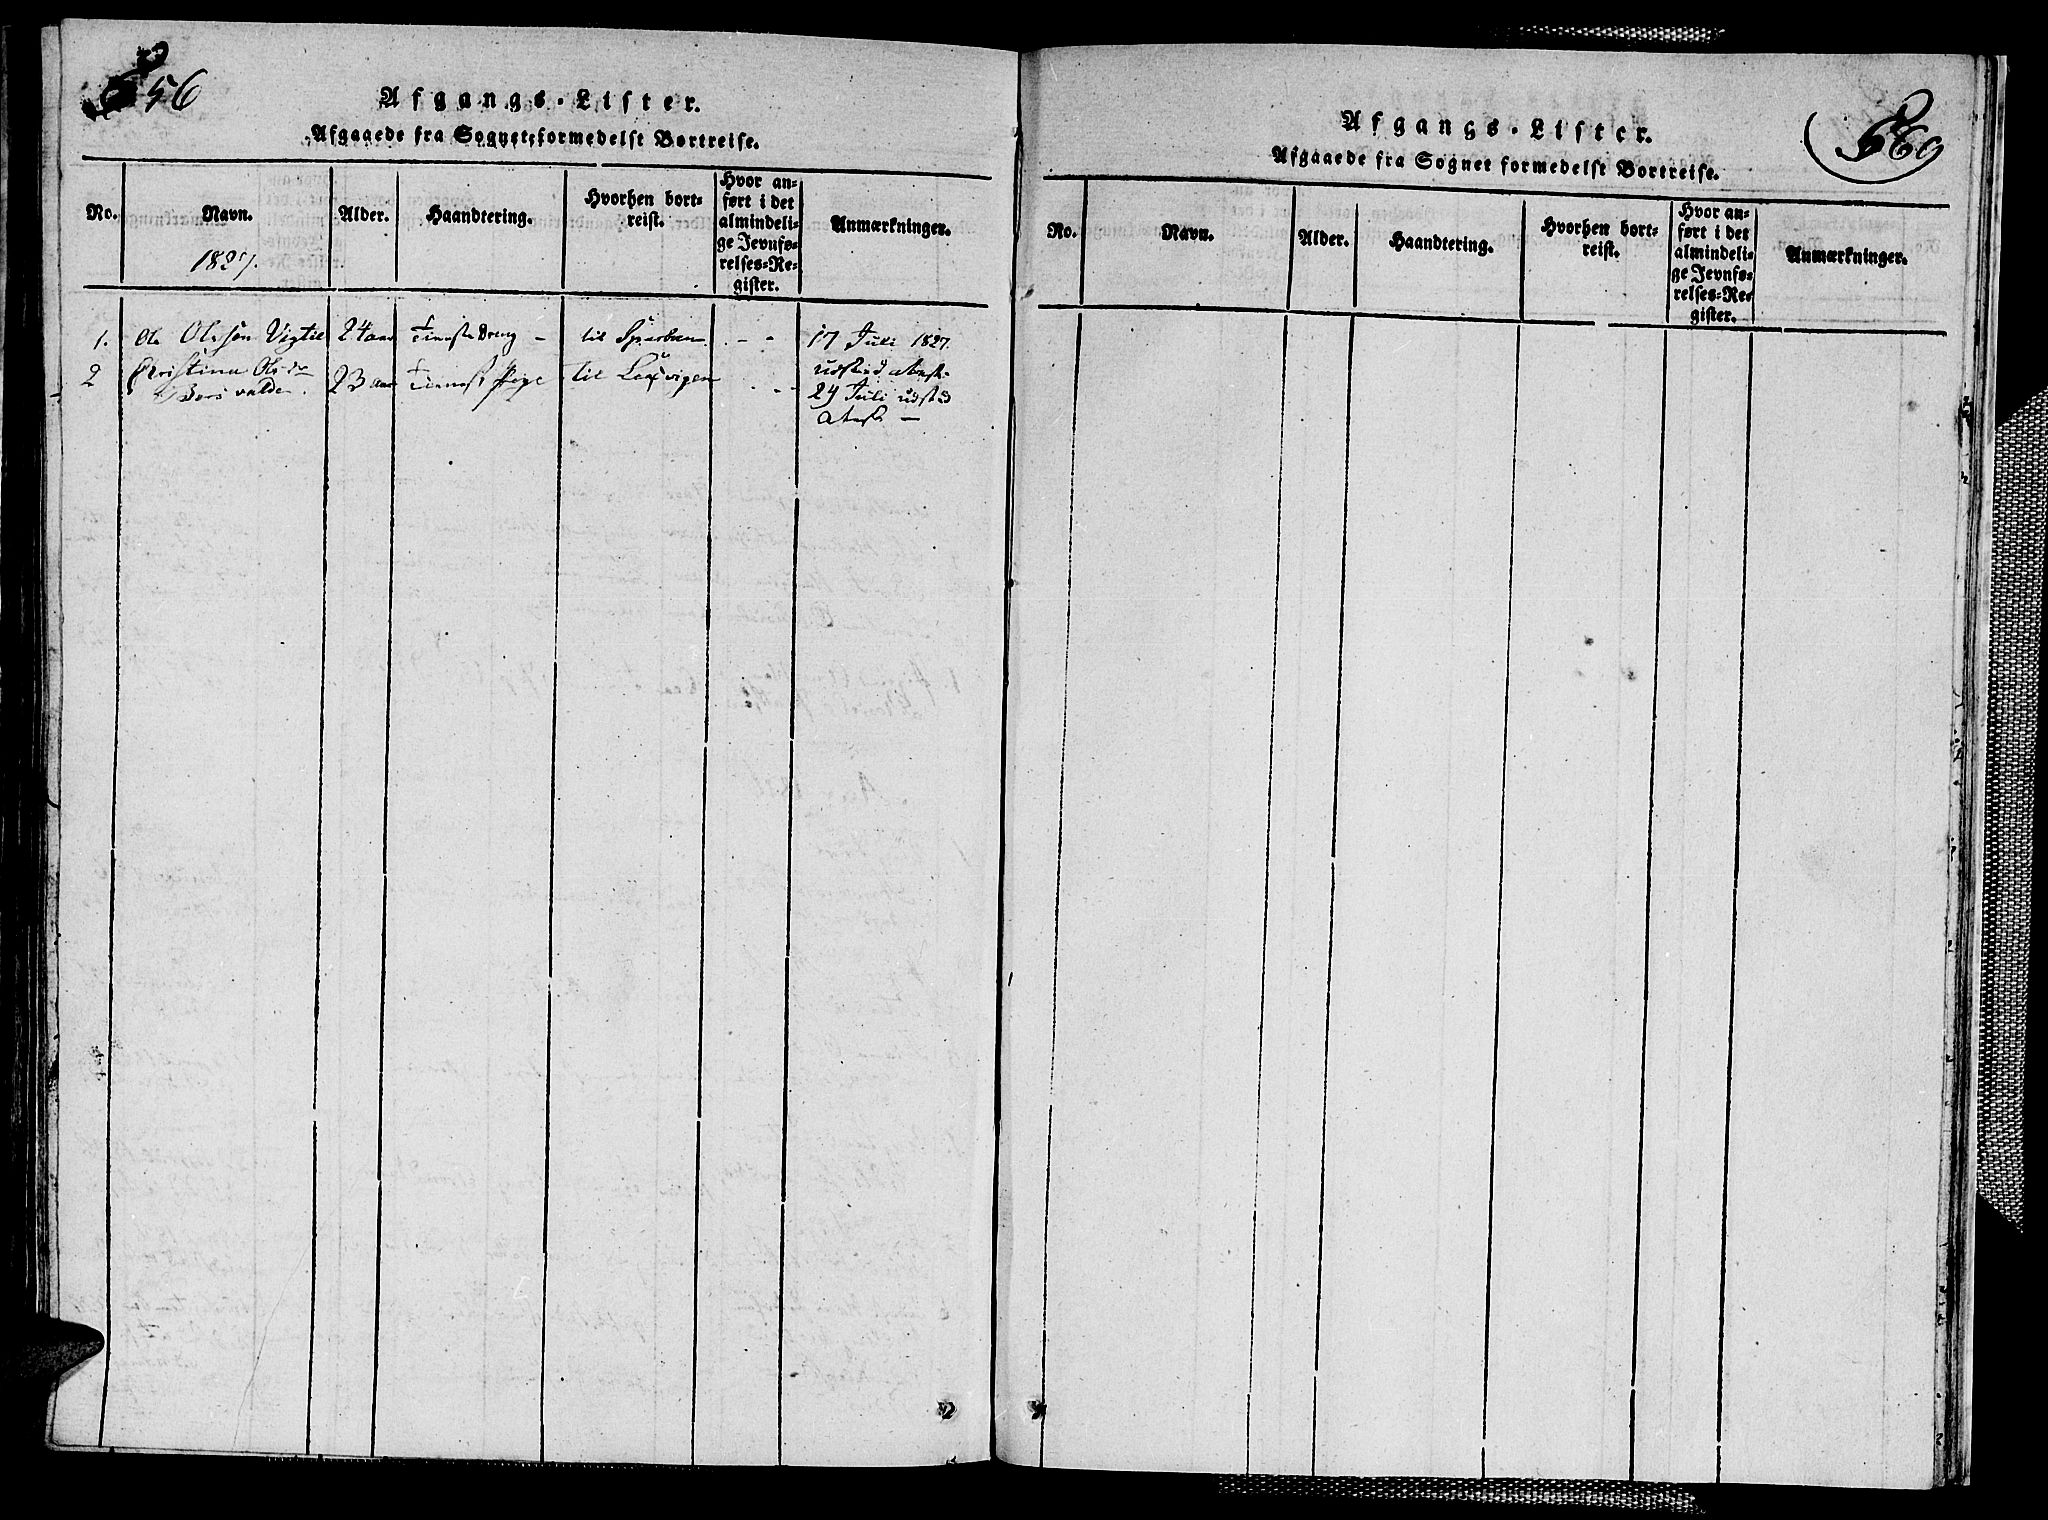 56
Afgangs-Lister.
Afgaaede fra Sognet formedelst Bortreise.
No.
Navn.
1827.
Alder.
Haandtering.
Hvorhen bort-
reist.
Hvor an-
ført i det
almindeli-
ge Jevnfø-
relses-Re-
gister.
Anmærkninger.
1. Ole Olssøn Vigtil 24 aar Tienestedreng - til Sparbuen - - 17 Juli 1827.
udstæd attest.
2 Christina Olsdr 23 aar Tienestpige til Lexvigen - - 24 Juli udstæd
attest —
Afgangs-Lister.
Afgaaede fra Sognet formedelst Bortreise.
No.
Navn.
Alder.
Haandtering.
Hvorhen bort-
reist.
Hvor an-
ført i det
almindeli-
ge Jevnfø-
relses-Re-
gister.
Anmærkninger.